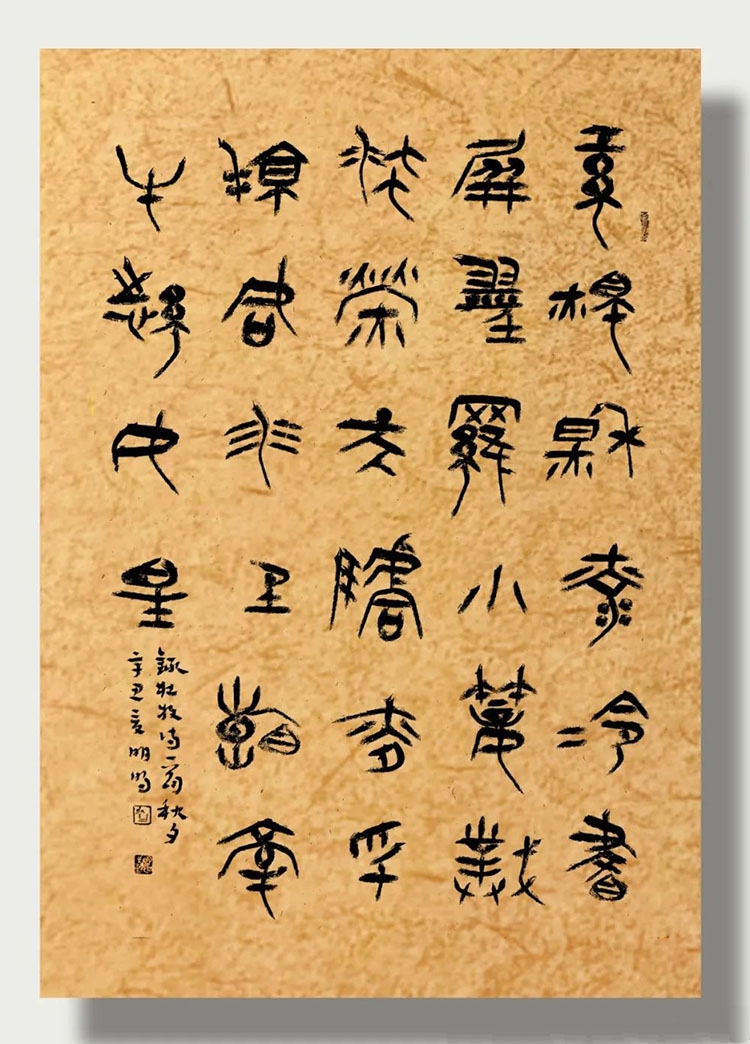 紅燭秋光冷畫
屏輕羅小扇撲
流螢天階夜色
涼如水臥看牽
牛織女星
錄杜牧詩一首秋夕
辛丑夏明